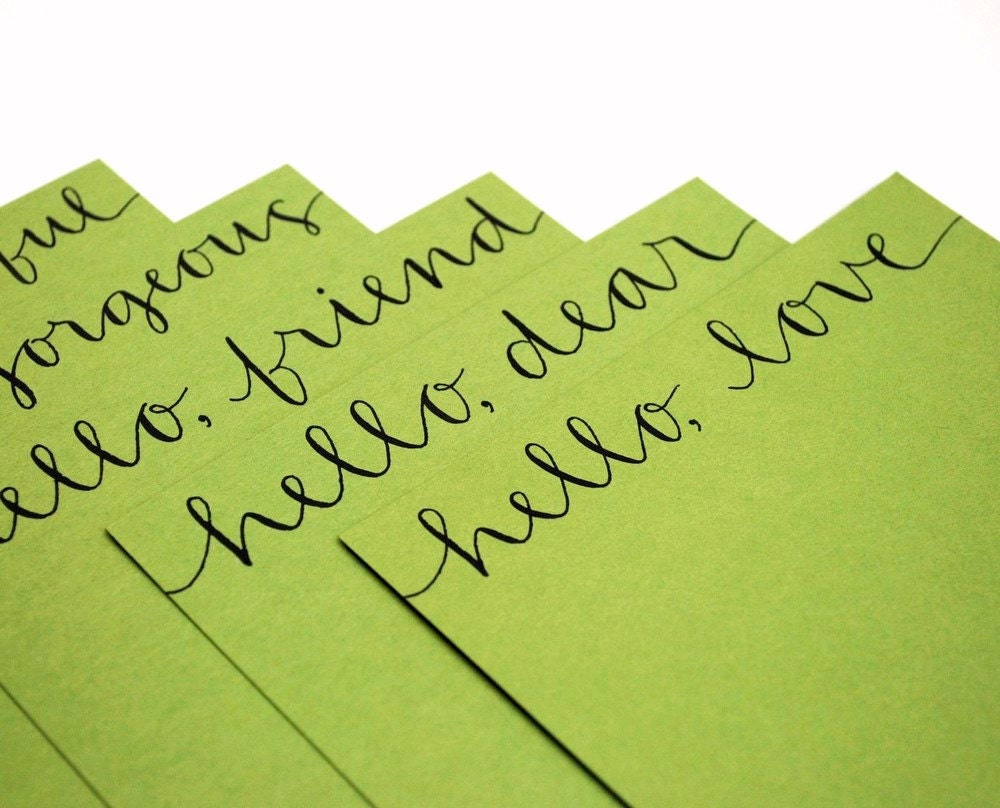 gorgeous
hello, friend
hello, dear
hello, love